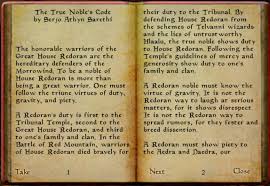 The True Noble's Code
by Serjo Athyn Sarethi
The honorable warriors of the
Great House Redoran are the
hereditary defenders of the
Morrowind. To be a noble of
House Redoran is more than
being a great warrior. One must
follow the triune virtues of duty,
gravity, and piety.
A Redoran's duty is first to the
Tribunal Temple, second to the
Great House Redoran, and third
to one's family and clan. In the
Battle of Red Mountain, warriors
of House Redoran died bravely for
Take
1
their duty to the Tribunal. By
defending House Redoran from
the schemes of Telvanni wizards
and the lies of untrustworthy
Hlaalu, the true noble shows duty
to House Redoran. Following the
Temple's guidelines of mercy and
generosity show duty to one's
family and clan.
A Redoran noble must know the
virtue of gravity. It is not the
Redoran way to laugh at serious
matters, for it shows disrespect.
It is not the Redoran way to
spread rumors, for they fester and
breed dissension.
A Redoran must show piety to
the Aedra and Daedra, our
Next
2
Close